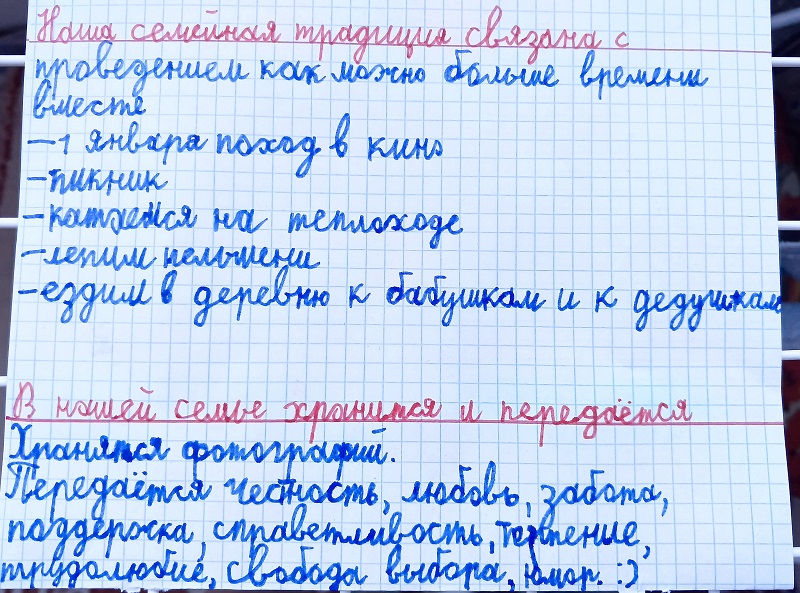 Наша семейная традиция связана с
проведением как можно больше времени
вместе
— 1 января поход в кино
— пикник
— катаемся на теплоходе
— лепим пельмени
— ездим в деревню к бабушкам и к дедушкам
В нашей семье хранится и передаётся
Хранятся фотографий.
Передаётся честность, любовь, забота,
поддержка, справетливость, терпение,
трудолюбие, свобода выбора, юмор. :)